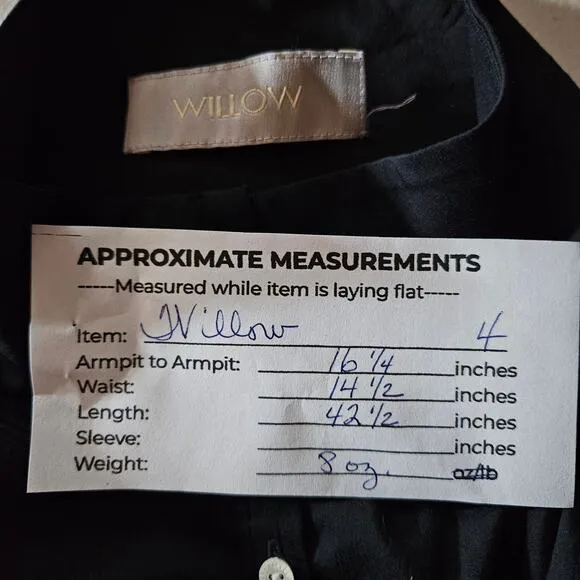 WILLOW
APPROXIMATE MEASUREMENTS
-----Measured while item is laying flat-----
Item: Willow 4
Armpit to Armpit: 16 1/4 inches
Waist: 14 1/2 inches
Length: 42 1/2 inches
Sleeve: inches
Weight: 8 oz. oz/lb